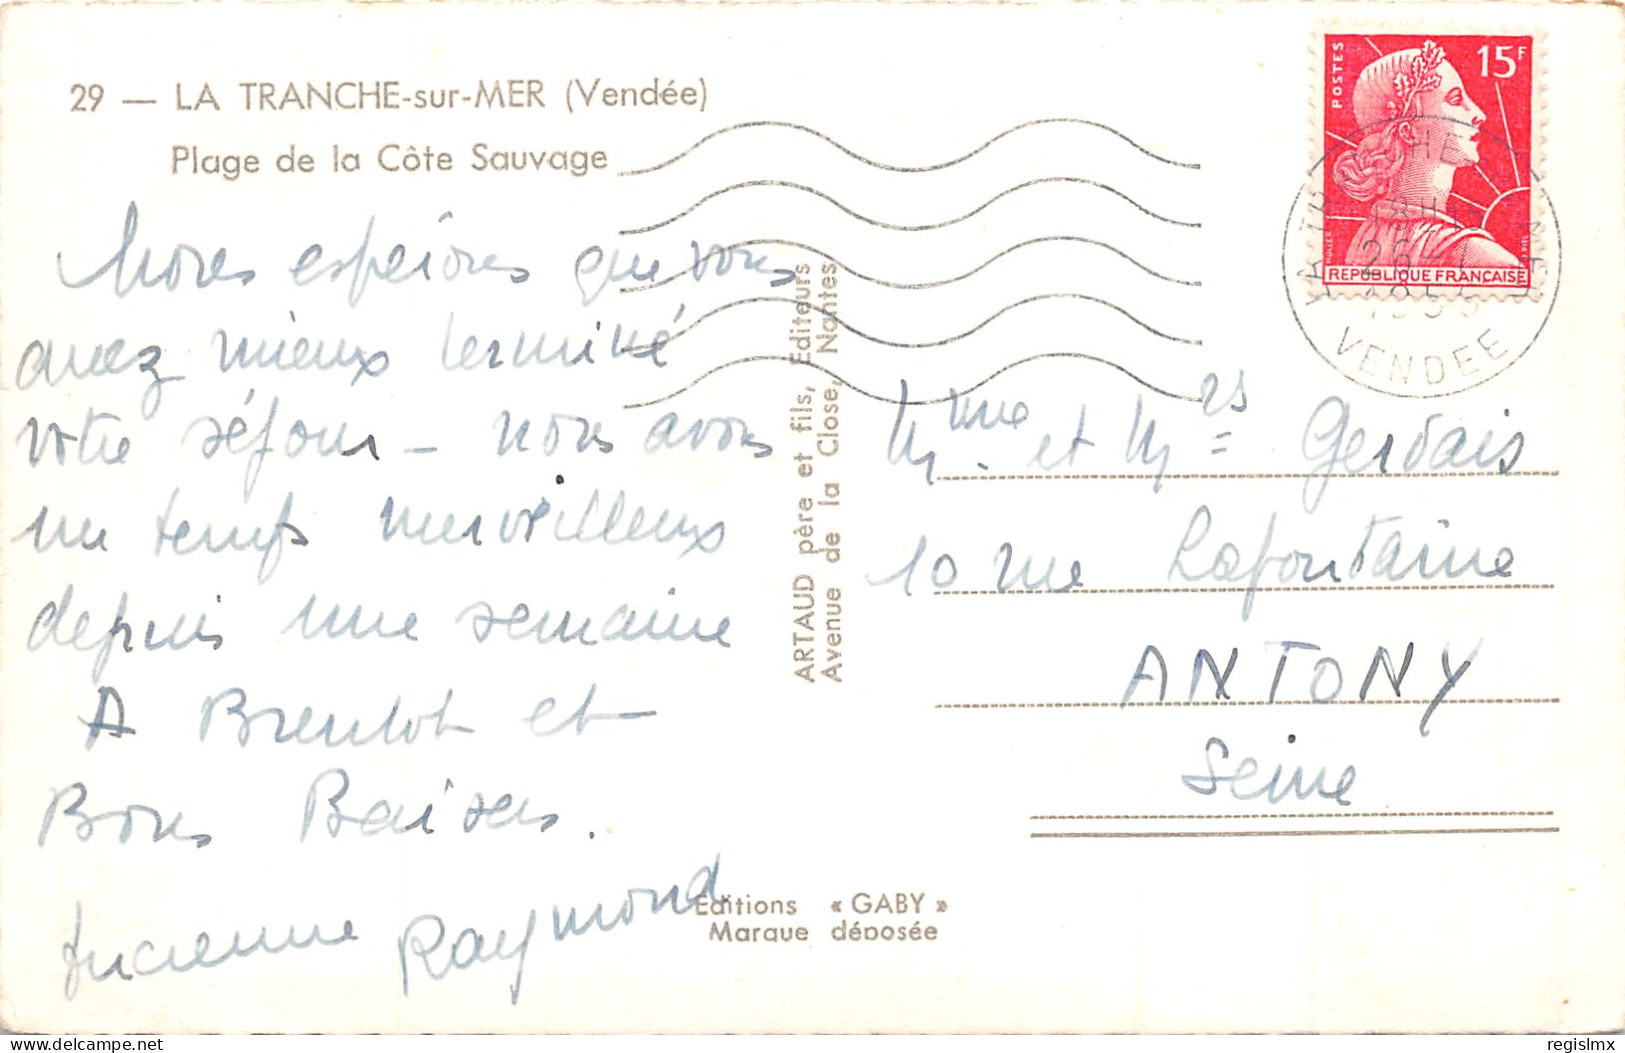 29 — LA TRANCHE-sur-MER (Vendée)
Plage de la Côte Sauvage
Nous espérons que vous
avez mieux terminé
votre séjour – nous avons
un temps merveilleux
depuis une semaine
A Bientot et
Bons Baisers.
Lucienne Raymond
ARTAUD père et fils, Editeurs
Avenue de la Close, Nantes
Editions « GABY »
Marque déposée
POSTES
15F
REPUBLIQUE FRANÇAISE
MULLER
LA TRANCHE S MER
18H
26-7
VENDEE
Mme et Mrs Gervais
10 rue Lafontaine
ANTONY
Seine
www.delcampe.net
regislmx